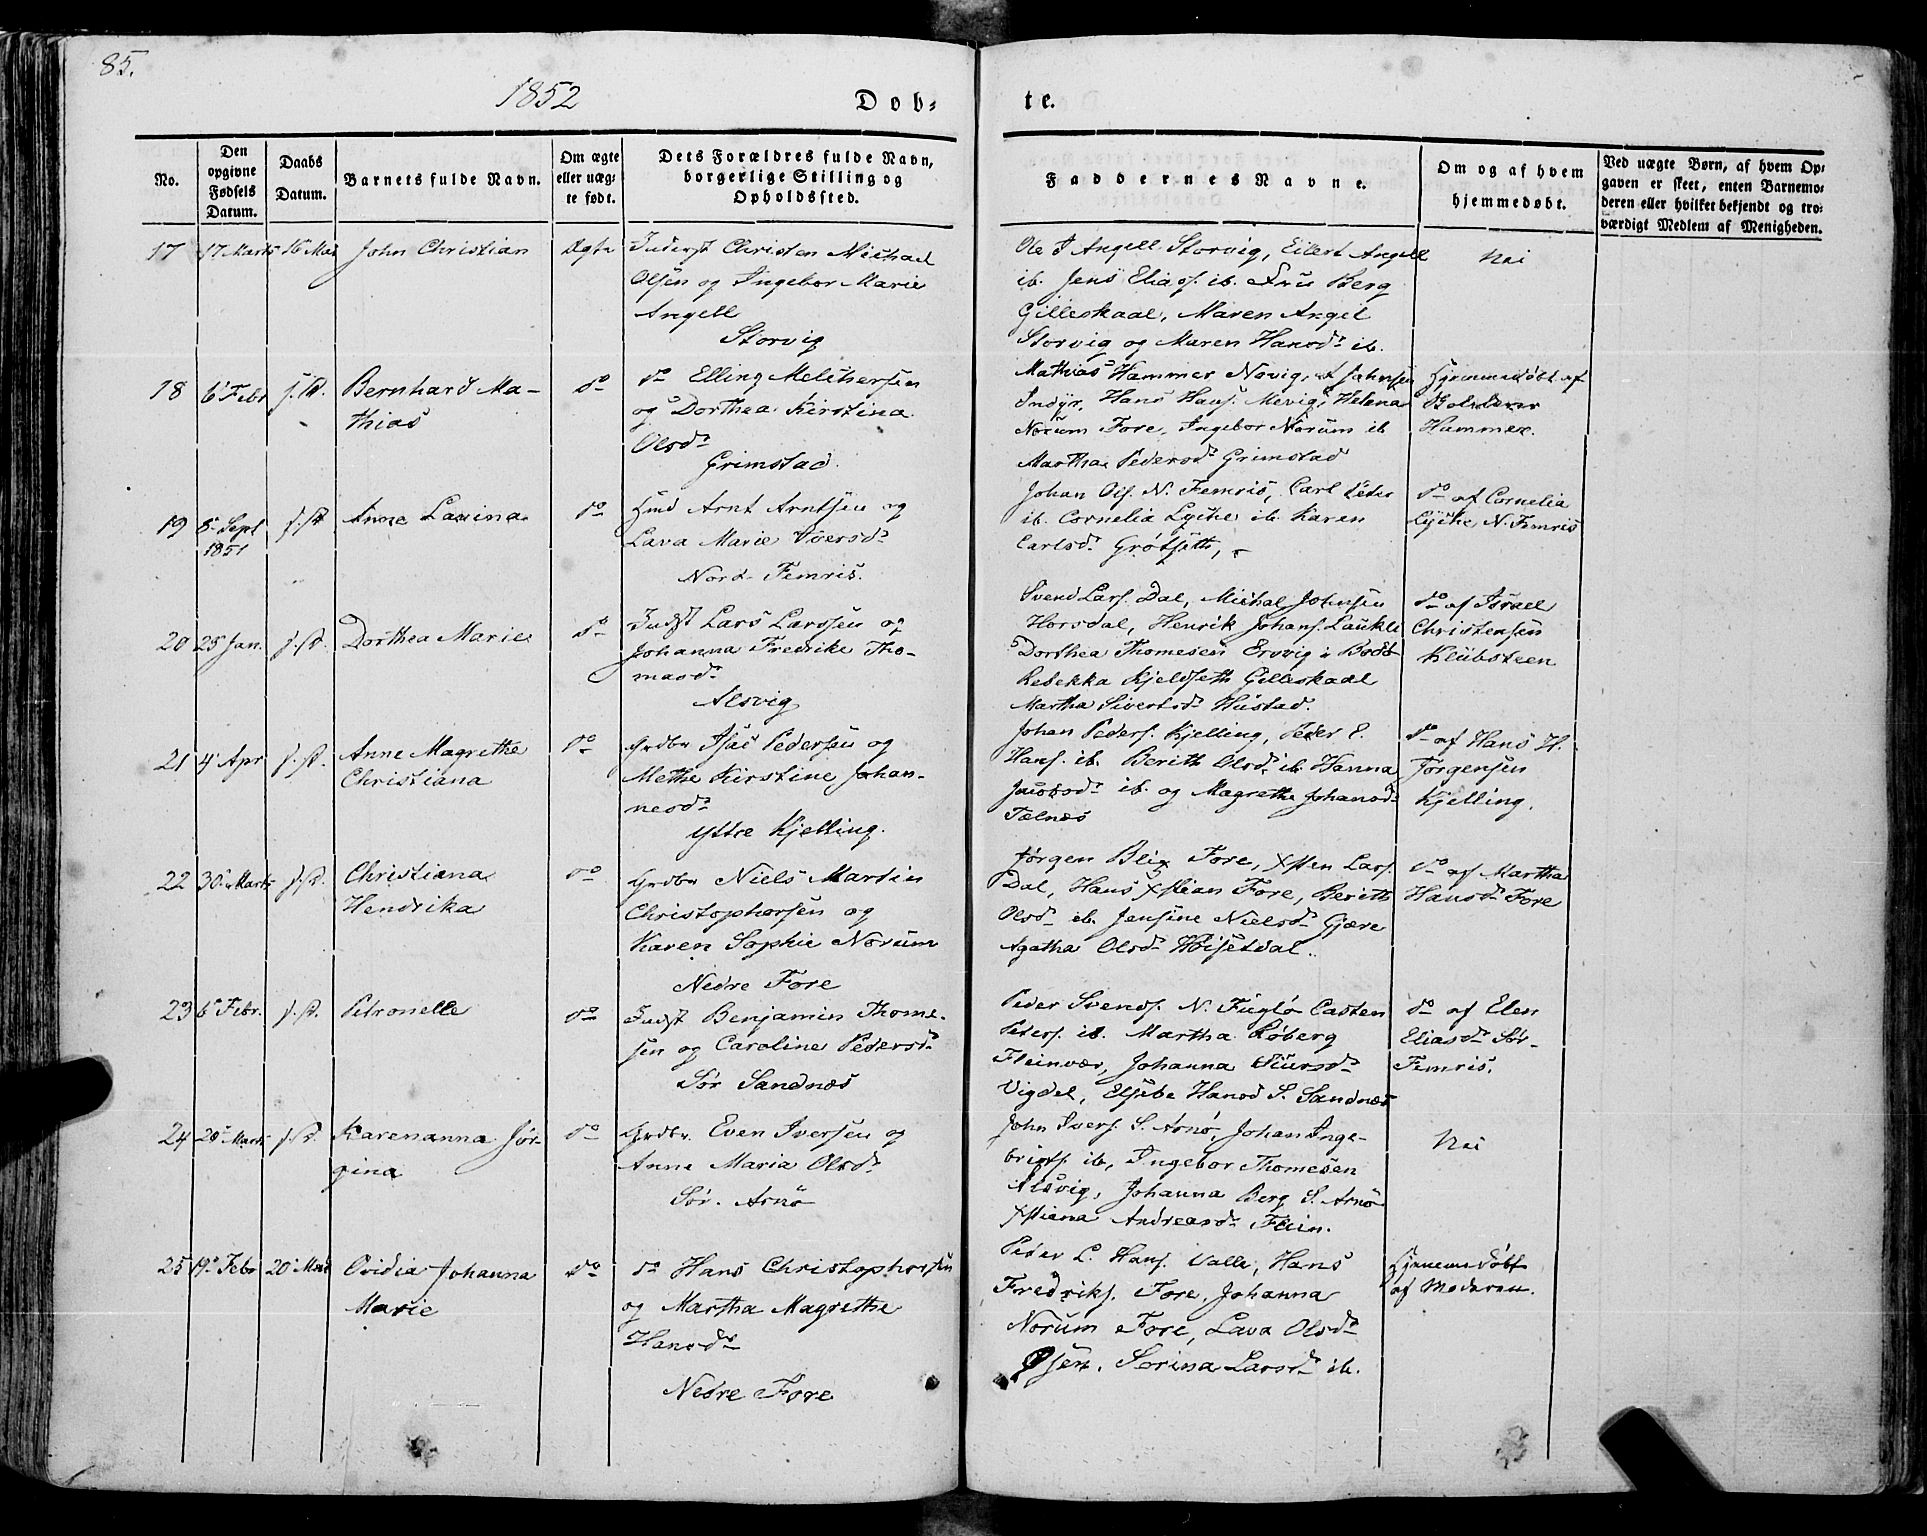 85.
1852
Dob-
te.
No.
Den opgivne Fødsels Datum.
Daabs Datum.
Barnets fulde Navn.
Om ægte eller uægte født.
Dets Forældres fulde Navn, borgerlige Stilling og Opholdssted.
Faddernes Navne.
Om og af hvem hjemmedøbt.
Ved uægte Børn, af hvem Opgaven er skeet, enten Barnemoderen eller hvilket bekjendt og troværdigt Medlem af Menigheden.
17 17 Marts 16 Mai John Christian Ægte Inderst Christen Michael
Olsen og Ingebor Marie
Angell
Storvig
Ole J Angell Storvig, Eilert Angell
ib. Jens Elias. ib. Fru Berg
Gilleskaal, Maren Angel
Storvig og Maren Hansd. ib.
Nei
18 6 Febr s. D. Bernhard Ma-
thias
do
do Elling Melchersen
og Dorthea Kirstina
Olsd.
Grimstad.
Mathias Hammer Novig, Johnsen
Indyr, Hans Hans. Mevig, Helena
Norum Fore, Ingebor Norum ib
Martha Pedersd. Grimstad
Hjemmedøbt af
Hammer.
19 8 Sept
1851
s. D. Anne Lavina do Arnt Arntsen og
Lava Marie Iversd.
Nord Femris.
Johan Ols. N. Femris, Carl Peder
ib. Cornelia Lyche ib. Karen
Carlsd. Grötset,
do af Cornelia
Lyche N. Femris
20 25 Jan. s. D. Dorthea Marie do Indst Lars Larssen og
Johanna Fredrike Tho-
masd.
Alsvig
Svend Lars. Dal, Michal Johnsen
Horsdal, Henrik Johans. Laukli
Dorthea Thomesen Ervig i Bodö
Rebekka Kjeldseth Gilleskaal
Martha Sivertsd. Hustad.
do af Israel
Christensen
Klubsteen
21 4 Apr s. D. Anne Magrethe
Christiana
do Grdbr Isac Pedersen og
Methe Kirstine Johan-
nesd.
Yttre Kjelling.
Johan Peders. Kjelling, Peder E.
Hans. ib. Berith Olsd. ib. Hanna
Jacobsd. ib. og Magrethe Johansd.
Telnes
do af Hans H.
Jørgensen
Kjelling.
22 30 Marts s. D. Christiana
Hendrika
do Grdbr Niels Martin
Christophersen og
Karen Sophie Norum
Nedre Fore
Jørgen Blix Fore, Xsten Lars.
Dal, Hans Xstian Fore, Berith
Olsd. ib. Jensine Nielsd. Gjære
Agatha Olsd. Höisetdal.
do af Martha
Hansd. Fore
23 6 Febr. s. D. Petronelle do Indst Benjamin Thome-
sen og Caroline Pedersd.
Sør Sandnæs
Peder Svends. N. Fuglö Casten
Peders. ib. Martha Røberg
Fleinvær, Johanna Siursd.
Vigdel, Elsebe Hansd S. Sandnæs
do af Elen
Eliasd. Sör-
Femris.
24 28 Marts s. D. Karenanna Jør-
gina
do Grdbr. Even Iversen og
Anne Maria Olsd.
Sør. Arnö
John Ivers. S. Arnö, Johan Inge-
brigts. ib, Ingebor Thomesen
Alsvig, Johanna Berg S. Arnö
Xstiana Andreasd. Flein.
Nei
25 19 Febr 20 Mai Ovidia Johanna
Marie
do
do Hans Christophersen
og Martha Magrethe
Hansd.
Nedre Fore
Peder L. Hans. Valle, Hans
Fredriks. Fore, Johanna
Norum Fore, Lava Olsd.
Øsen. Sorina Larsd. ib.
Hjemmedøbt
af Moderen.